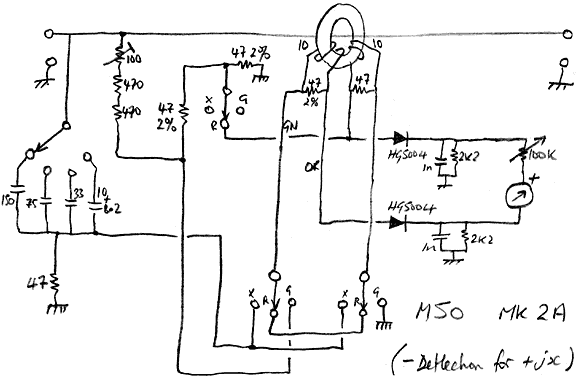 10
10
100
47 2%
470
470
47
2%
47
2%
47
X
G
R
GN
OR
HG5004
1n
2K2
100K
+
HG5004
1n
2K2
150
75
33
10
+
602
47
X
R
G
X
R
G
M50 MK 2A
(- Deflection for +jx)